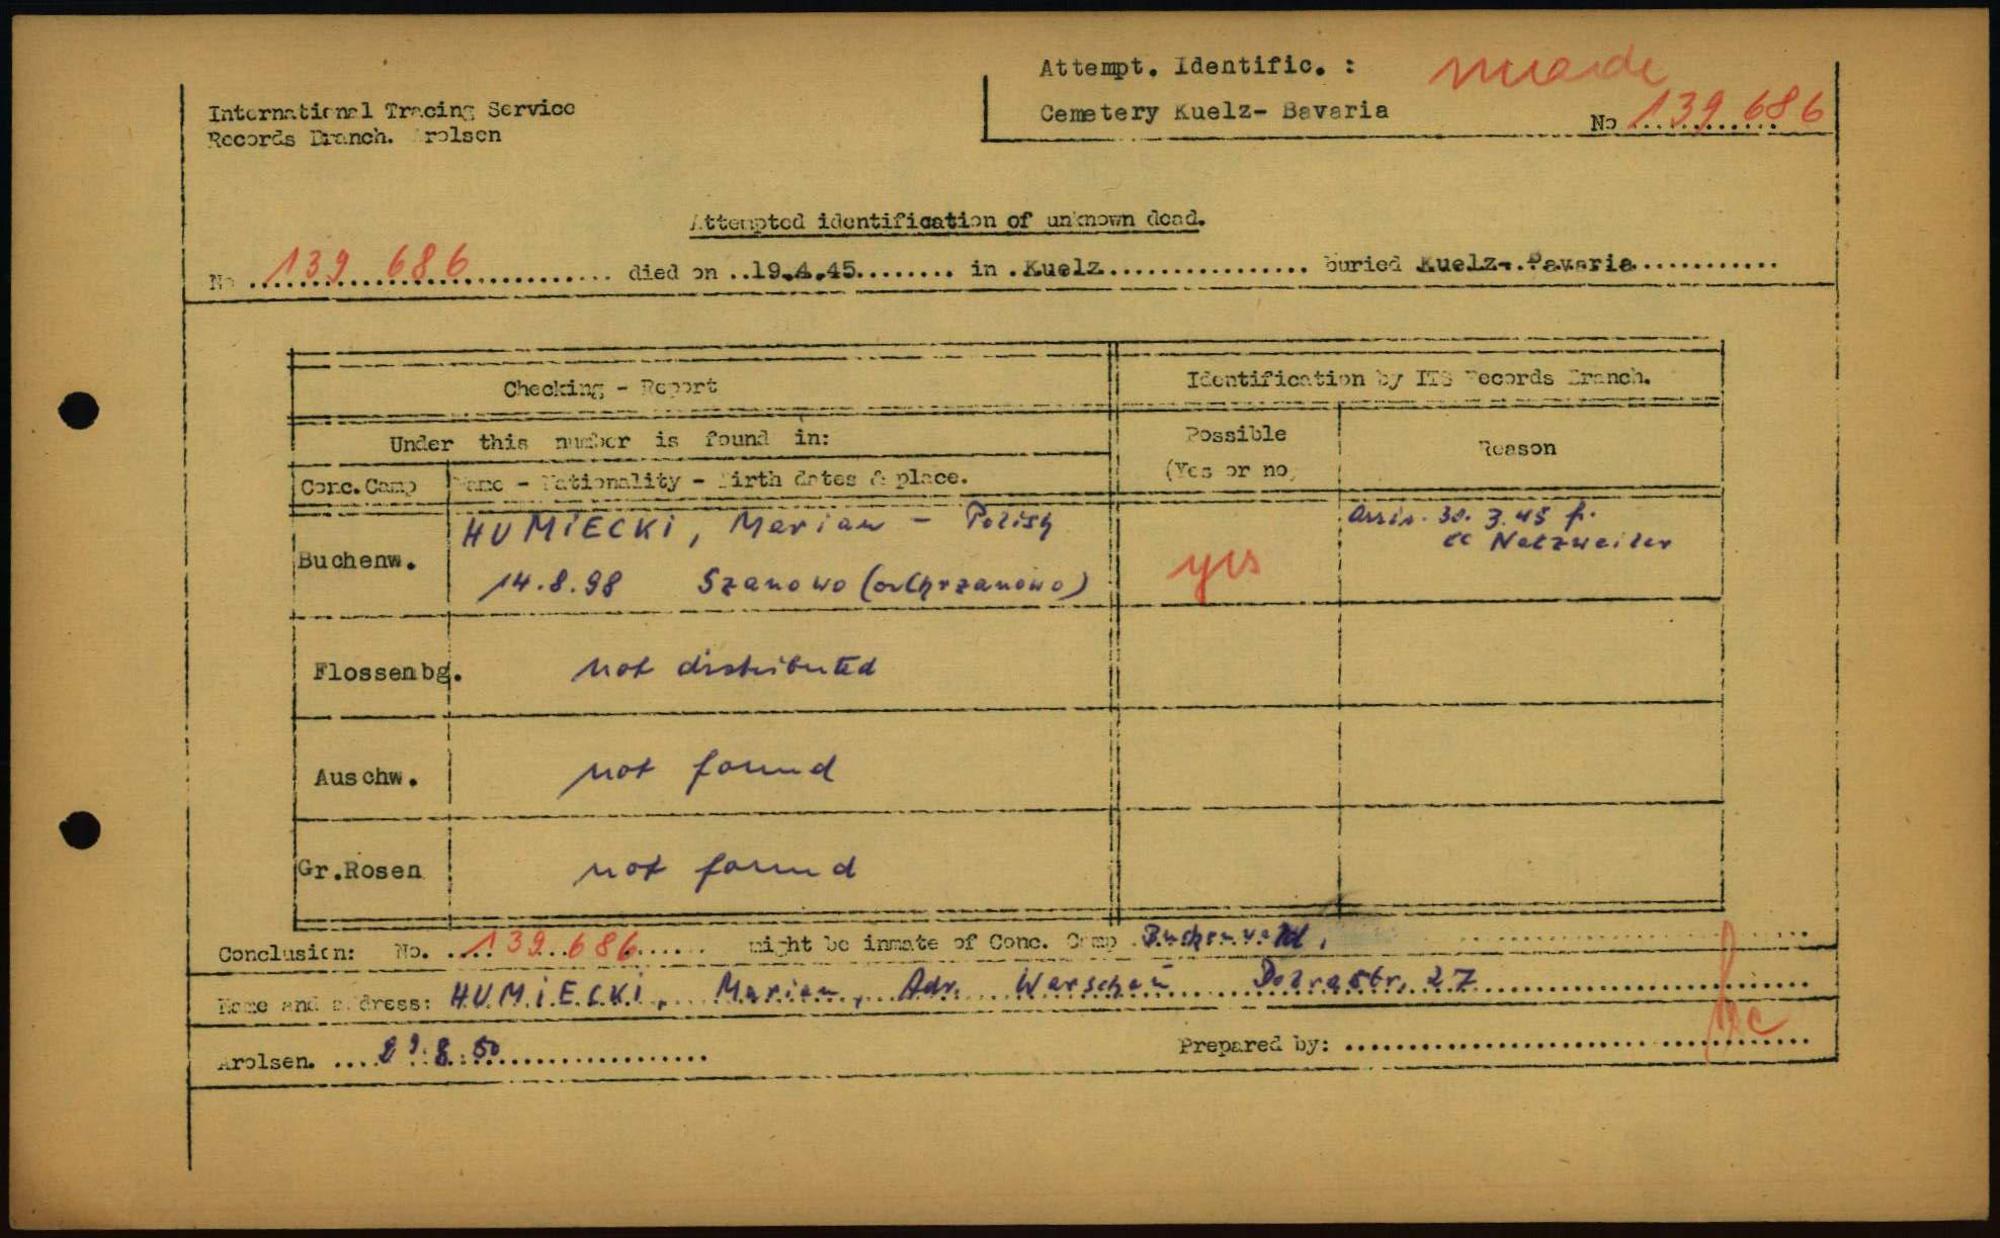 Attempt. Identific. : made
Cemetery Kuelz- Bavaria
No 139 686
International Tracing Service
Records Branch. Arolsen
Attempted identification of unknown dead.
No 139 686 died on ..19.4.45........ in .Kuelz................. buried Kuelz-.Bavaria............
Checking - Report
Identification by ITS Records Branch.
Under this number is found in:
Possible
(Yes or no)
Reason
Conc.Camp
Name - Nationality - Birth dates & place.
Buchenw.
HUMIECKI, Marian - Polish
14.8.98 Szanowo (or Chrzanowo)
yes
Arriv. 30.3.45 f.
cc Natzweiler
Flossenbg.
not distributed
Auschw.
not found
Gr.Rosen
not found
Conclusion: No. 139 686 might be inmate of Conc. Camp Buchenwald,
Name and address: HUMIECKI, Marian, Adr. Warschau Dobrastr. 27
Arolsen. 29.8.50
Prepared by: